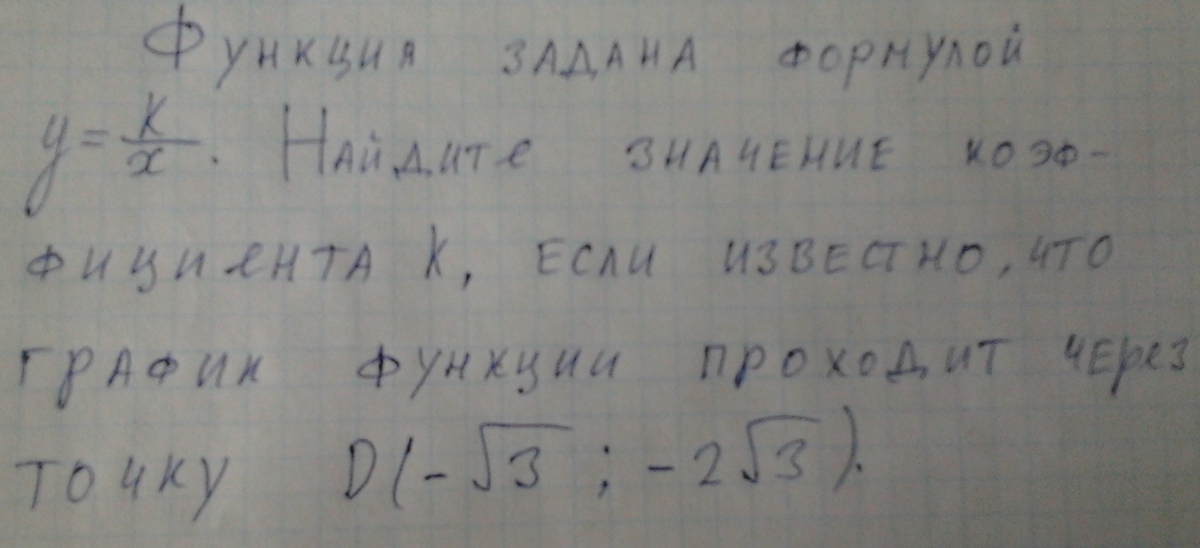 Функция задана формулой
y = k/x. Найдите значение коэф-
фициента k, если известно, что
график функции проходит через
точку D(-√3 ; -2√3).